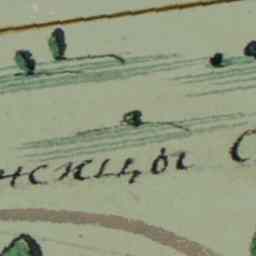 нскицы С